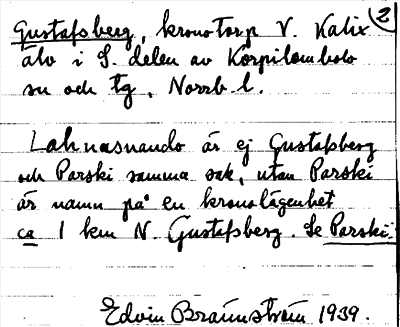 Gustafsberg, kronotorp V. Kalix 2
älv i S. delen av Korpilombolo
sn och tg, Norrb. l.
Lahnasnando är ej Gustafsberg
och Parski samma sak, utan Parski
är namn på en kronolägenhet
ca 1 km N. Gustafsberg. Se Parski.
Edvin Brännström 1939.